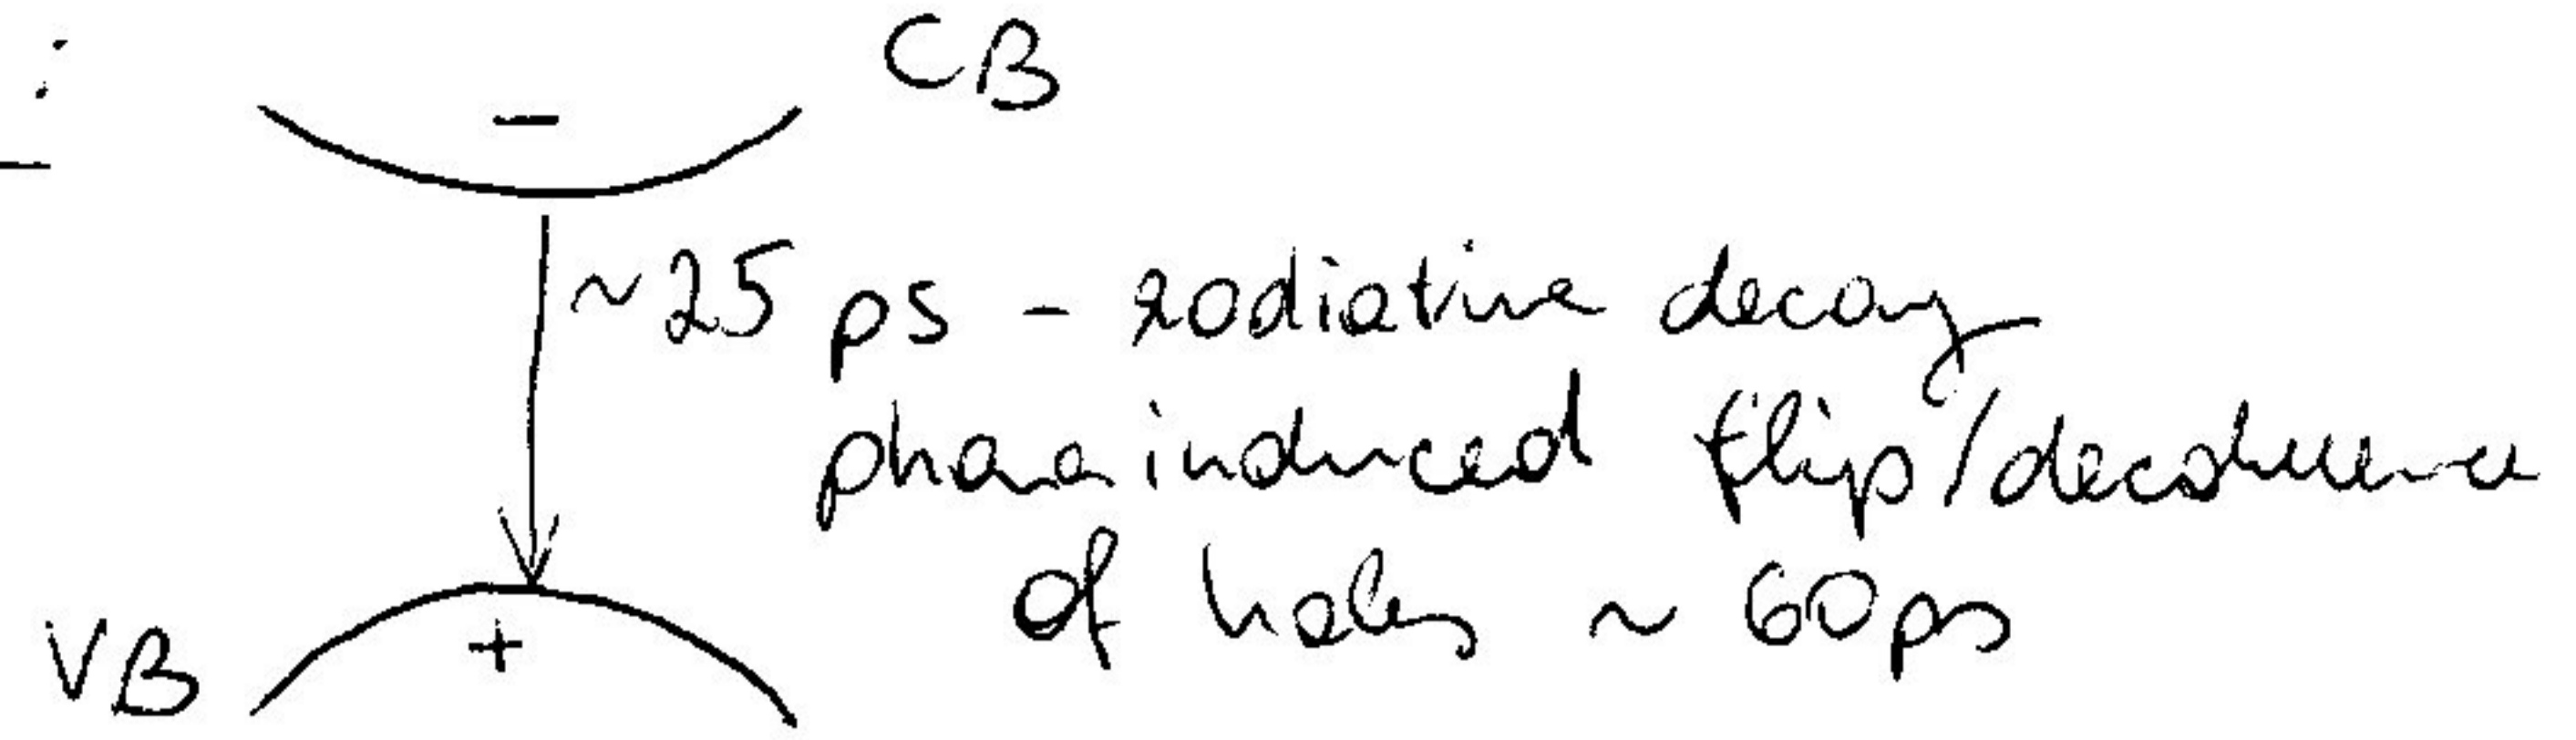 CB
-
~25 ps - radiative decay
induced flip/decoherence
of holes ~ 60ps
VB +